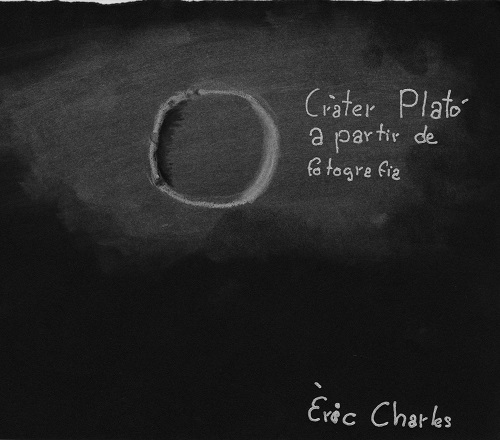 Cràter Plató
a partir de
fotografia
Èric Charles